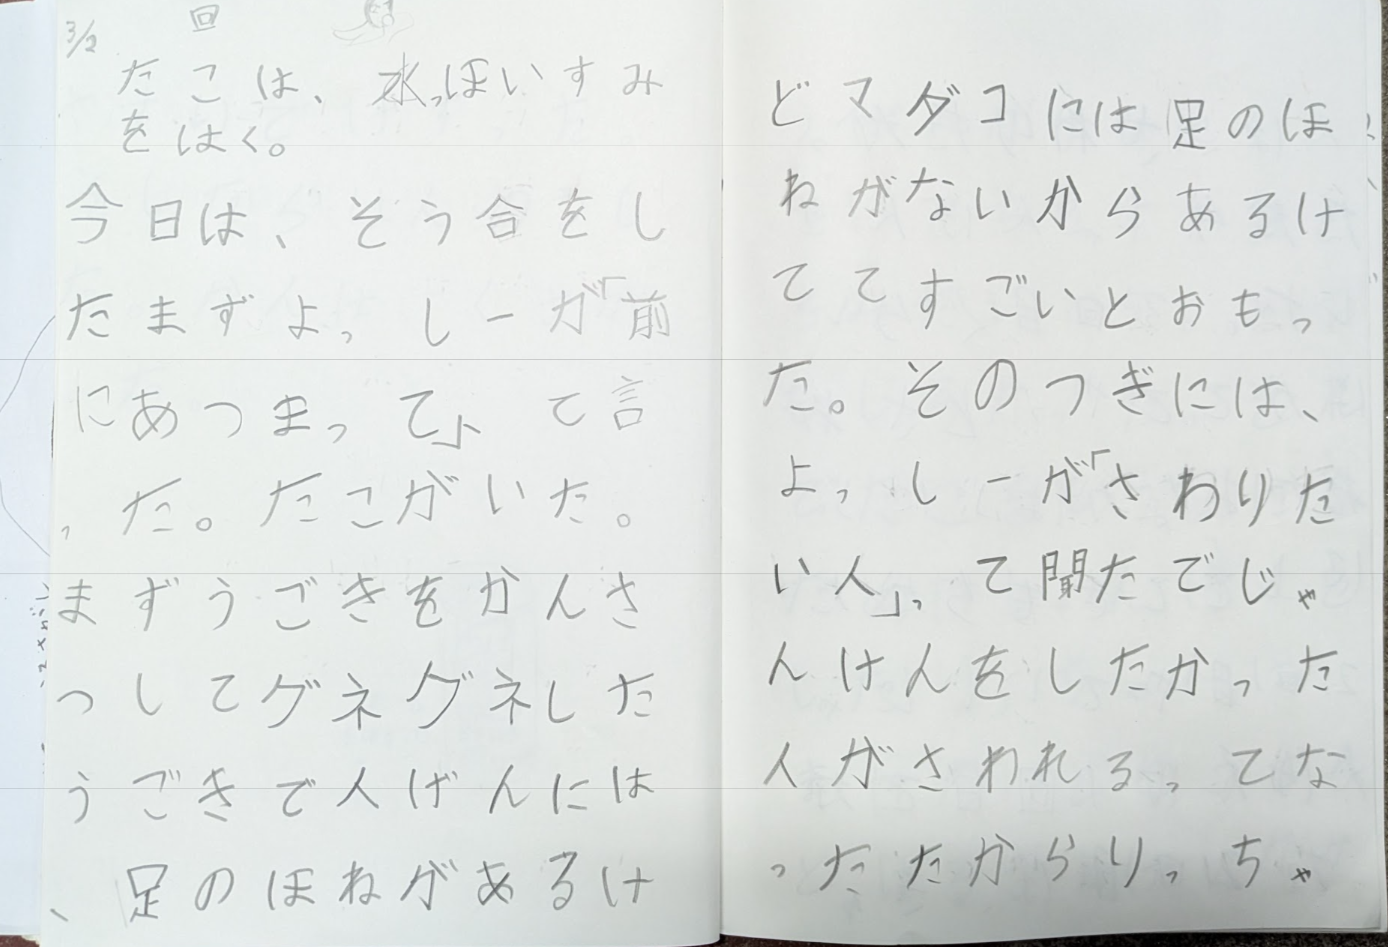 3/2
回
たこは、水っぽいすみ
をはく。
今日は、そう合をし
たまずよっしーが「前
にあつまって」、て言
った。たこがいた。
まずうごきをかんさ
つしてグネグネした
うごきで人げんには
、足のほねがあるけ
どマダコには足のほ
ねがないからあるけ
ててすごいとおもっ
た。そのつぎには、
よっしーが「さわりた
い人」、って聞たでじゃ
んけんをしたかった
人がさわれるってな
ったたからりっちゃ